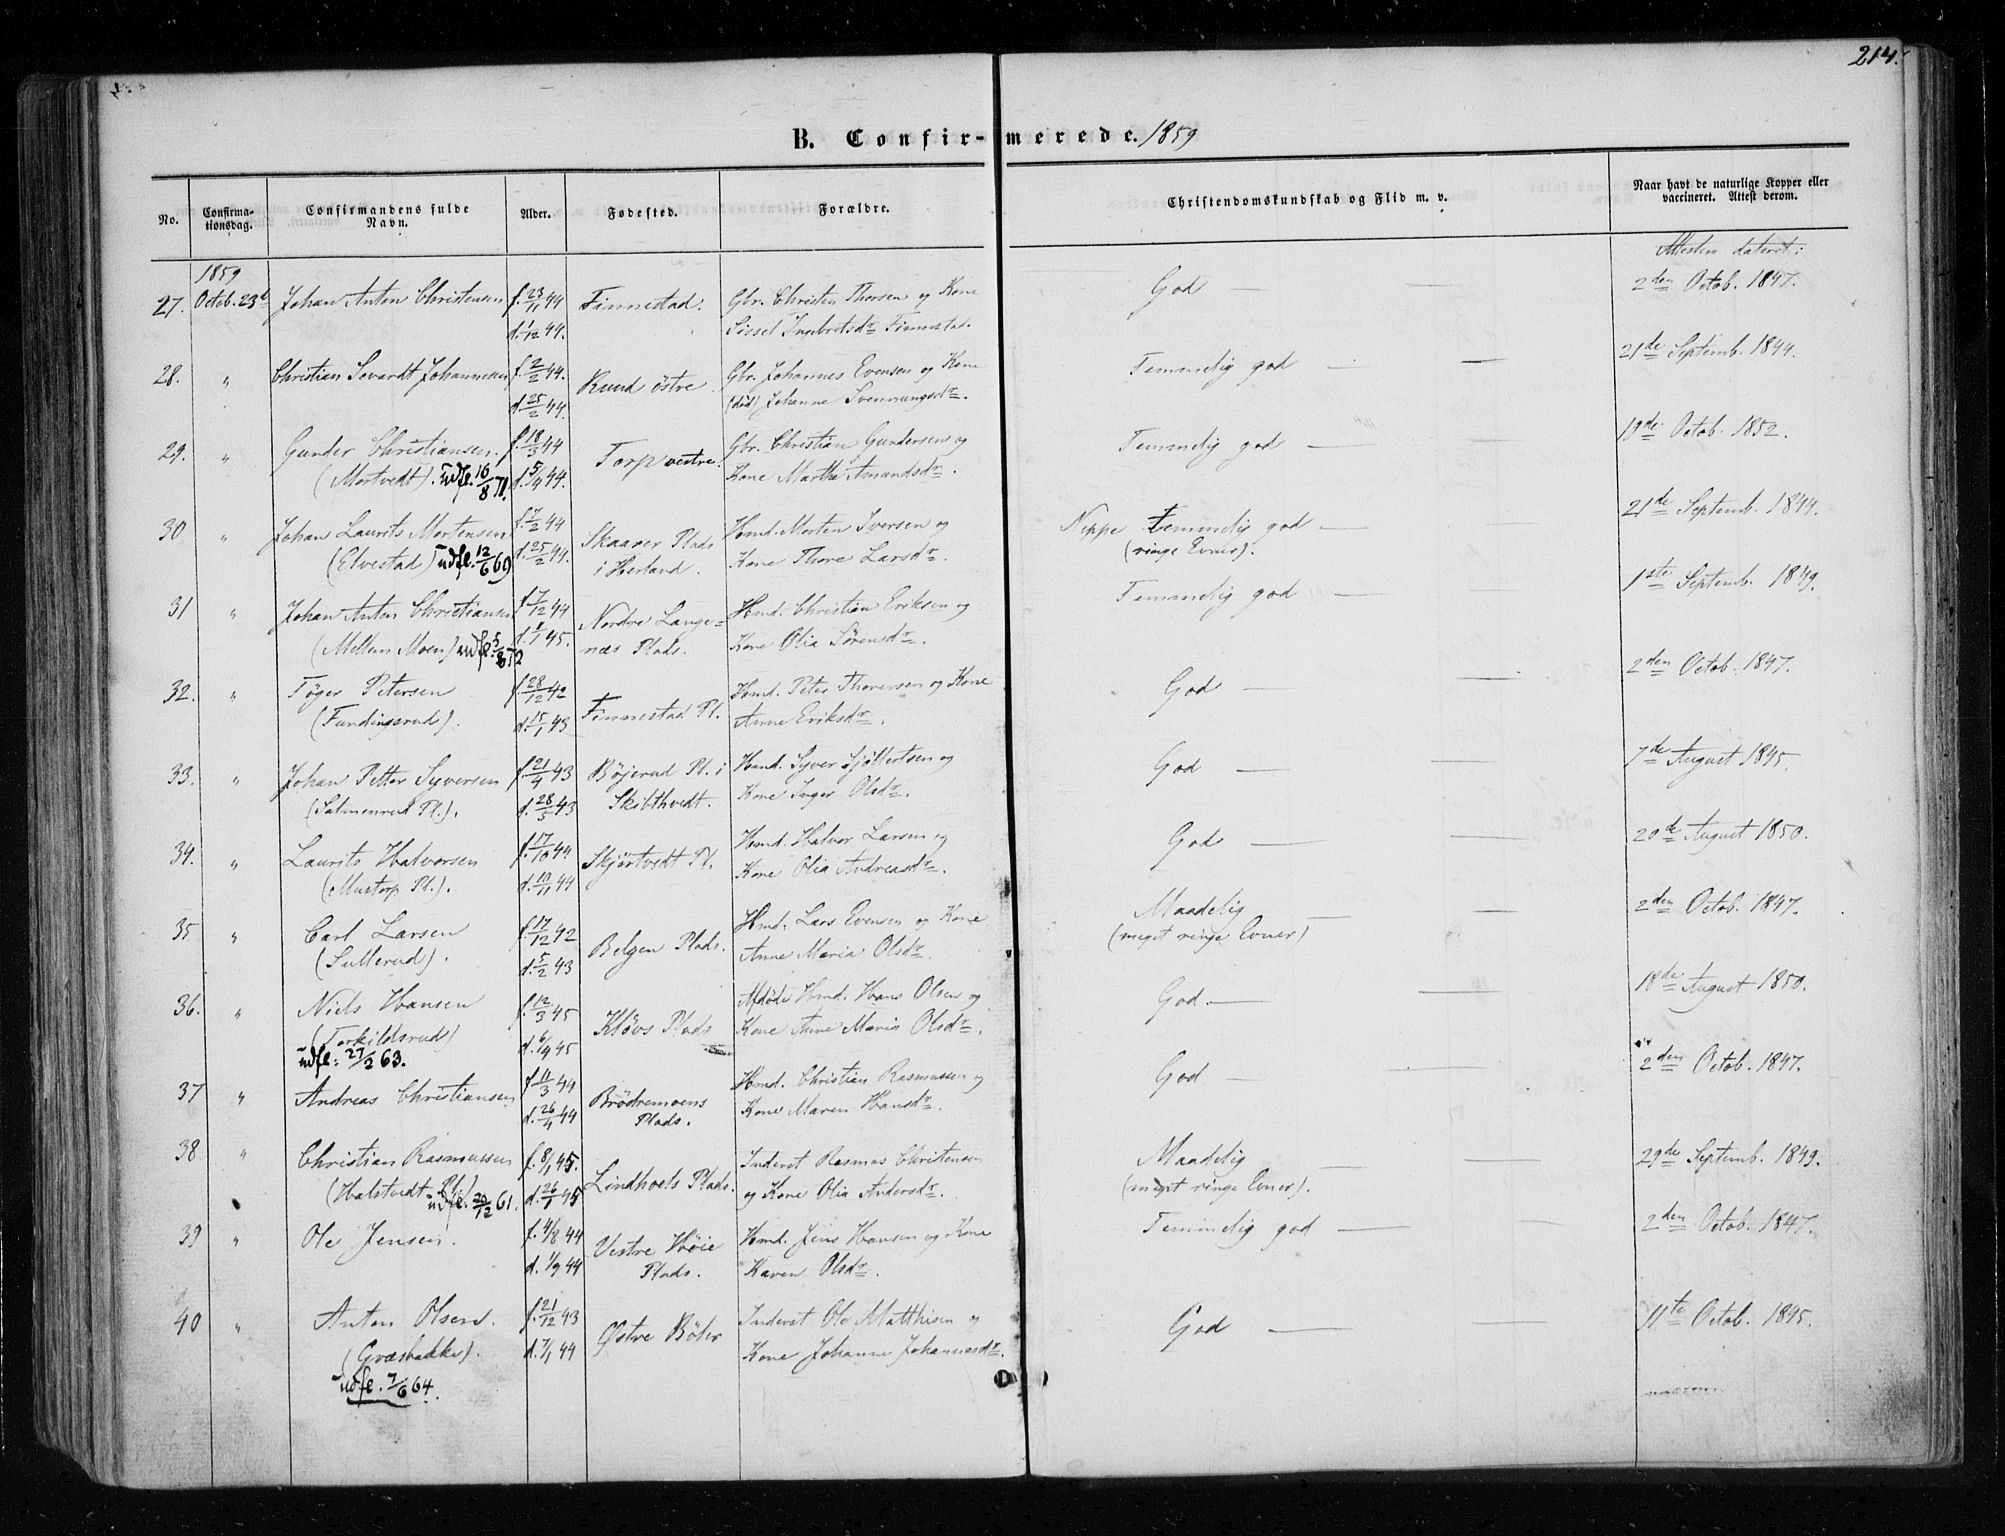 214.
B. Confirmerede. 1859
No.
Confirmationsdag.
Confirmandens fulde Navn.
Alder.
Fødested.
Forældre.
Christendomskundskab og Flid m. v.
Naar havt de naturlige Kopper eller vaccineret. Attest derom.
1859
Attesten dateret:
27. Octob. 23d Johan Anton Christensen f. 23/11 44 Finnestad. Gbr. Christen Thorsen og Kone God — — 2den Octob. 1847.
d. 1/12 44. Sissel Ingebretsdr Finnestad.
28. " Christian Sevardt Johannesen f. 2/2 44. Ruud østre. Gbr. Johannes Evensen og Kone Temmelig god — — 21de Septemb. 1844.
d. 25/2 44. (død) Johanne Svennungsdr.
29. " Gunder Christiansen. f. 18/3 44 Torp vestre. Gbr. Christian Gundersen og Temmelig god — 19de Octob. 1852.
(Mortvedt). udfl. 16/8 71. d. 5/4 44. Kone Marthe Amundsdr.
30 " Johan Laurits Mortensen f. 7/2 44 Skaarer Plads Hmd. Morten Iversen og Neppe temmelig god — 21de Septemb. 1844.
(Elvestad) udfl. 12/6 69 d. 25/2 44. i Herland. Kone Thore Larsdr. (ringe Evner).
31 " Johan Anton Christiansen f. 7/12 44 Nordre Lange- Hmd. Christian Eriksen og Temmelig god — 1ste Septemb. 1849.
(Mellem Moen) udfl. 5/8 72 d. 1/1 45. næs Plads. Kone Olia Sørensdr.
32. " Tøger Petersen f. 28/12 42 Finnestad Pl. Hmd. Peter Thoresen og Kone God — — 2den Octob. 1847.
(Fundingsrud). d. 15/1 43 Anne Eriksdr.
33. " Johan Petter Syversen f. 21/4 43 Bøjerud Pl. i Hmd. Syver Sjøllertsen og God — — 7de August 1845.
(Salmenrud Pl.). d. 28/5 43 Skibthvedt. Kone Inger Olsdr.
34. " Laurits Halvorsen f. 17/10 44 Skjørtvedt Pl. Hmd. Halvor Larsen og God — — 20de August 1850.
(Mustorp Pl.). d. 10/11 44 Kone Olia Andreasdr.
35 " Carl Larsen f. 17/12 42 Belgen Plads. Hmd. Lars Evensen og Kone Maadelig — — 2den Octob. 1847.
(Sullerud). d. 5/2 43 Anne Maria Olsdr. (meget ringe Evner)
36. " Niels Hansen f. 12/3 45 Kløvs Plads Afdøde Hmd. Hans Olsen og God. — — 18de August 1850.
(Torkildsrud) d. 6/4 45 Kone Anne Maria Olsdr.
udfl: 27/2 63.
37 " Andreas Christiansen f. 11/3 44 Brødremoens Hmd. Christian Rasmussen og God — — 2den Octob. 1847.
d. 26/4 44 Plads. Kone Maren Hansdr.
38 " Christian Rasmussen f. 8/1 45. Lindhoels Plads. Inderst Rasmus Christensen Maadelig — — 29de Septemb. 1849.
(Halstvedt Pl.) udfl. 20/12 61. d. 26/1 45 og Kone Olia Andersdr. (meget ringe Evner).
39 " Ole Jensen. f. 4/8 44 Vestre Høie Hmd. Jens Hansen og Kone Temmelig god — — 2den Octob. 1847.
d. 1/9 44 Plads. Karen Olsdr.
40 " Anton Olsen. f. 21/12 43 Østre Bøler Inderst Ole Matthisen og God — — 11te Octob. 1845.
(Græsbakke). d. 7/1 44 Kone Johanne Johannesdr.
udfl. 7/6 64.